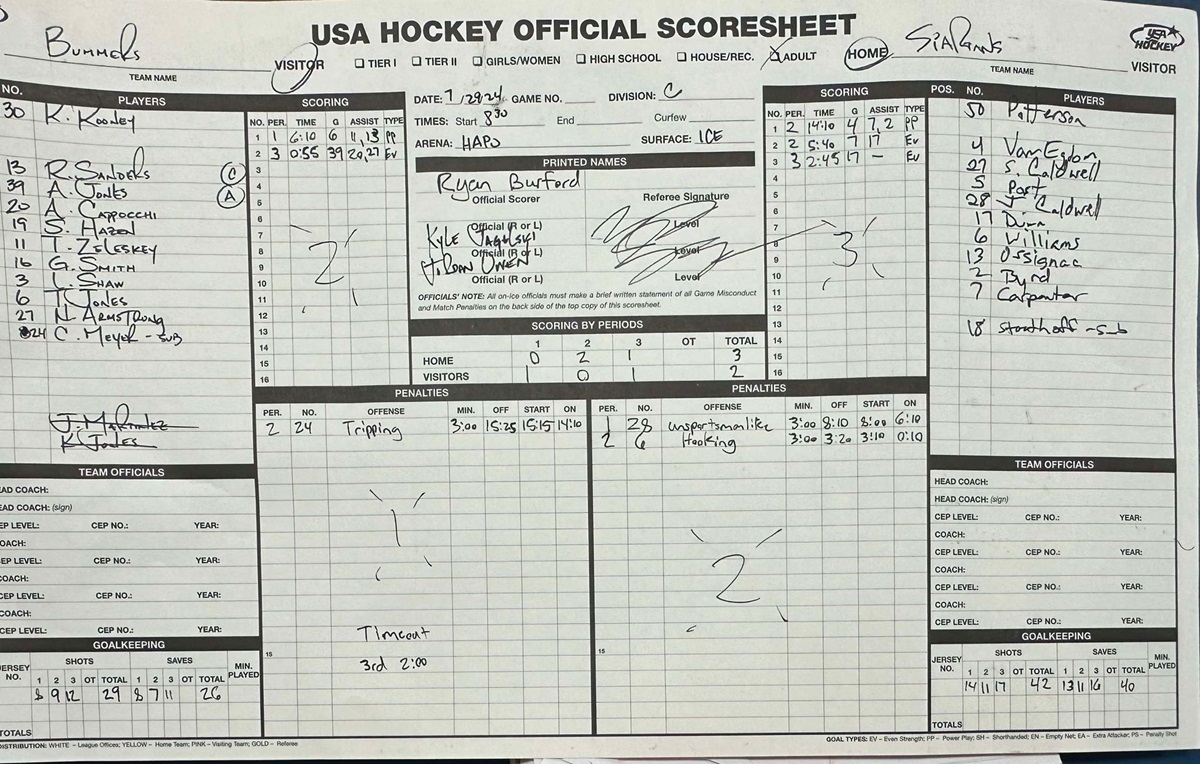 USA HOCKEY OFFICIAL SCORESHEET
Bummers
TEAM NAME
VISITOR
☐ TIER I ☐ TIER II ☐ GIRLS/WOMEN ☐ HIGH SCHOOL ☐ HOUSE/REC. ☒ ADULT
HOME
TEAM NAME
VISITOR
USA HOCKEY
NO. PLAYERS
30 K. Kooney
13 R. Sanders C
39 A. Jones A
20 A. Cappocchi
19 S. Hazen
11 T. Zeleskey
16 G. Smith
3 L. Shaw
6 T. Jones
27 N. Armstrong
24 C. Meyer - sub
J. Martinez
K Jones
SCORING
NO. PER. TIME G ASSIST TYPE
1 1 6:10 6 11,13 PP
2 3 0:55 39 20,27 Ev
3
4
5
6
7
8
9
10
11
12
13
14
15
16
2
DATE: 7/29/24 GAME NO. DIVISION: C
TIMES: Start 8:30 End Curfew
ARENA: HAPO SURFACE: ICE
PRINTED NAMES
Ryan Burford
Official Scorer Referee Signature
Kyle
Official (R or L) Level
Owen
Official (R or L) Level
Official (R or L) Level
OFFICIALS' NOTE: All on-ice officials must make a brief written statement of all Game Misconduct
and Match Penalties on the back side of the top copy of this scoresheet.
SCORING BY PERIODS
1 2 3 OT TOTAL
HOME 0 2 1 3
VISITORS 1 0 1 2
SCORING
NO. PER. TIME G ASSIST TYPE
1 2 14:10 4 7,2 PP
2 2 5:40 7 17 Ev
3 3 2:45 17 — Ev
4
5
6
7
8
9
10
11
12
13
14
15
16
3
POS. NO. PLAYERS
50 Patterson
4 VanEgdon
27 S. Caldwell
5 Port
28 J Caldwell
17 Dunn
6 Williams
13 Ossignac
2 Byrd
7 Carpenter
18 Stoothoff - sub
PENALTIES
PER. NO. OFFENSE MIN. OFF START ON
2 24 Tripping 3:00 15:25 15:15 14:10
1
Timeout
15
3rd 2:00
PENALTIES
PER. NO. OFFENSE MIN. OFF START ON
1 28 unsportsmanlike 3:00 8:10 8:00 6:10
2 6 Hooking 3:00 3:20 3:10 0:10
2
15
TEAM OFFICIALS
EAD COACH:
EAD COACH: (sign)
EP LEVEL: CEP NO.: YEAR:
OACH:
EP LEVEL: CEP NO.: YEAR:
COACH:
CEP LEVEL: CEP NO.: YEAR:
COACH:
CEP LEVEL: CEP NO.: YEAR:
GOALKEEPING
JERSEY NO. SHOTS SAVES MIN. PLAYED
1 2 3 OT TOTAL 1 2 3 OT TOTAL
8 9 12 29 8 7 11 26
TOTALS
TEAM OFFICIALS
HEAD COACH:
HEAD COACH: (sign)
CEP LEVEL: CEP NO.: YEAR:
COACH:
CEP LEVEL: CEP NO.: YEAR:
COACH:
CEP LEVEL: CEP NO.: YEAR:
COACH:
CEP LEVEL: CEP NO.: YEAR:
GOALKEEPING
JERSEY NO. SHOTS SAVES MIN. PLAYED
1 2 3 OT TOTAL 1 2 3 OT TOTAL
14 11 17 42 13 11 16 40
TOTALS
DISTRIBUTION: WHITE – League Offices; YELLOW – Home Team; PINK – Visiting Team; GOLD – Referee
GOAL TYPES: EV – Even Strength; PP – Power Play; SH – Shorthanded; EN – Empty Net; EA – Extra Attacker; PS – Penalty Shot